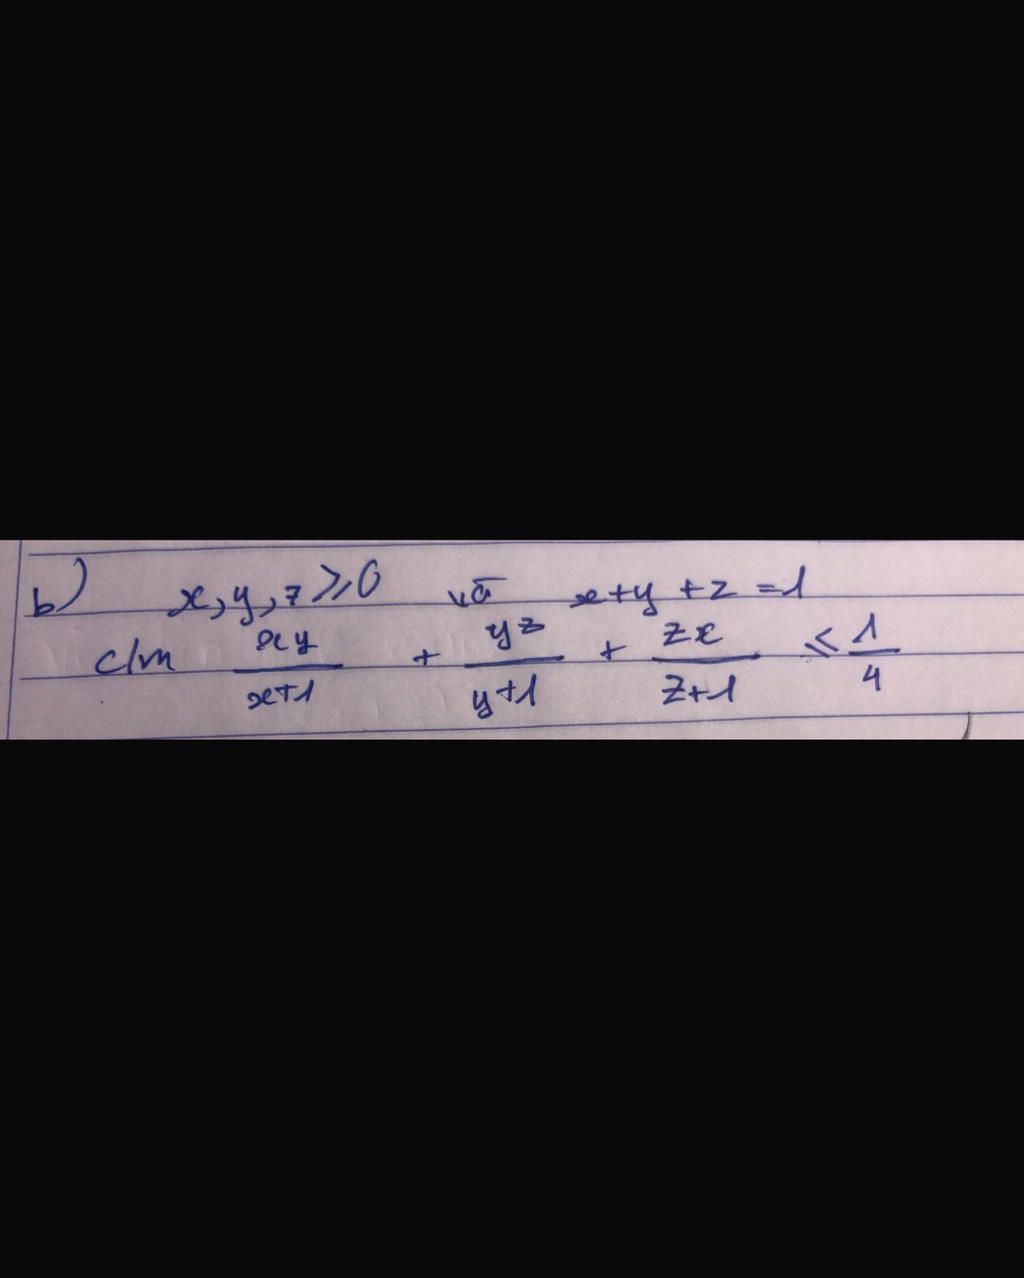 b) x, y, z ≥ 0 và x + y + z = 1
c/m xy/(x+1) + yz/(y+1) + zx/(z+1) ≤ 1/4